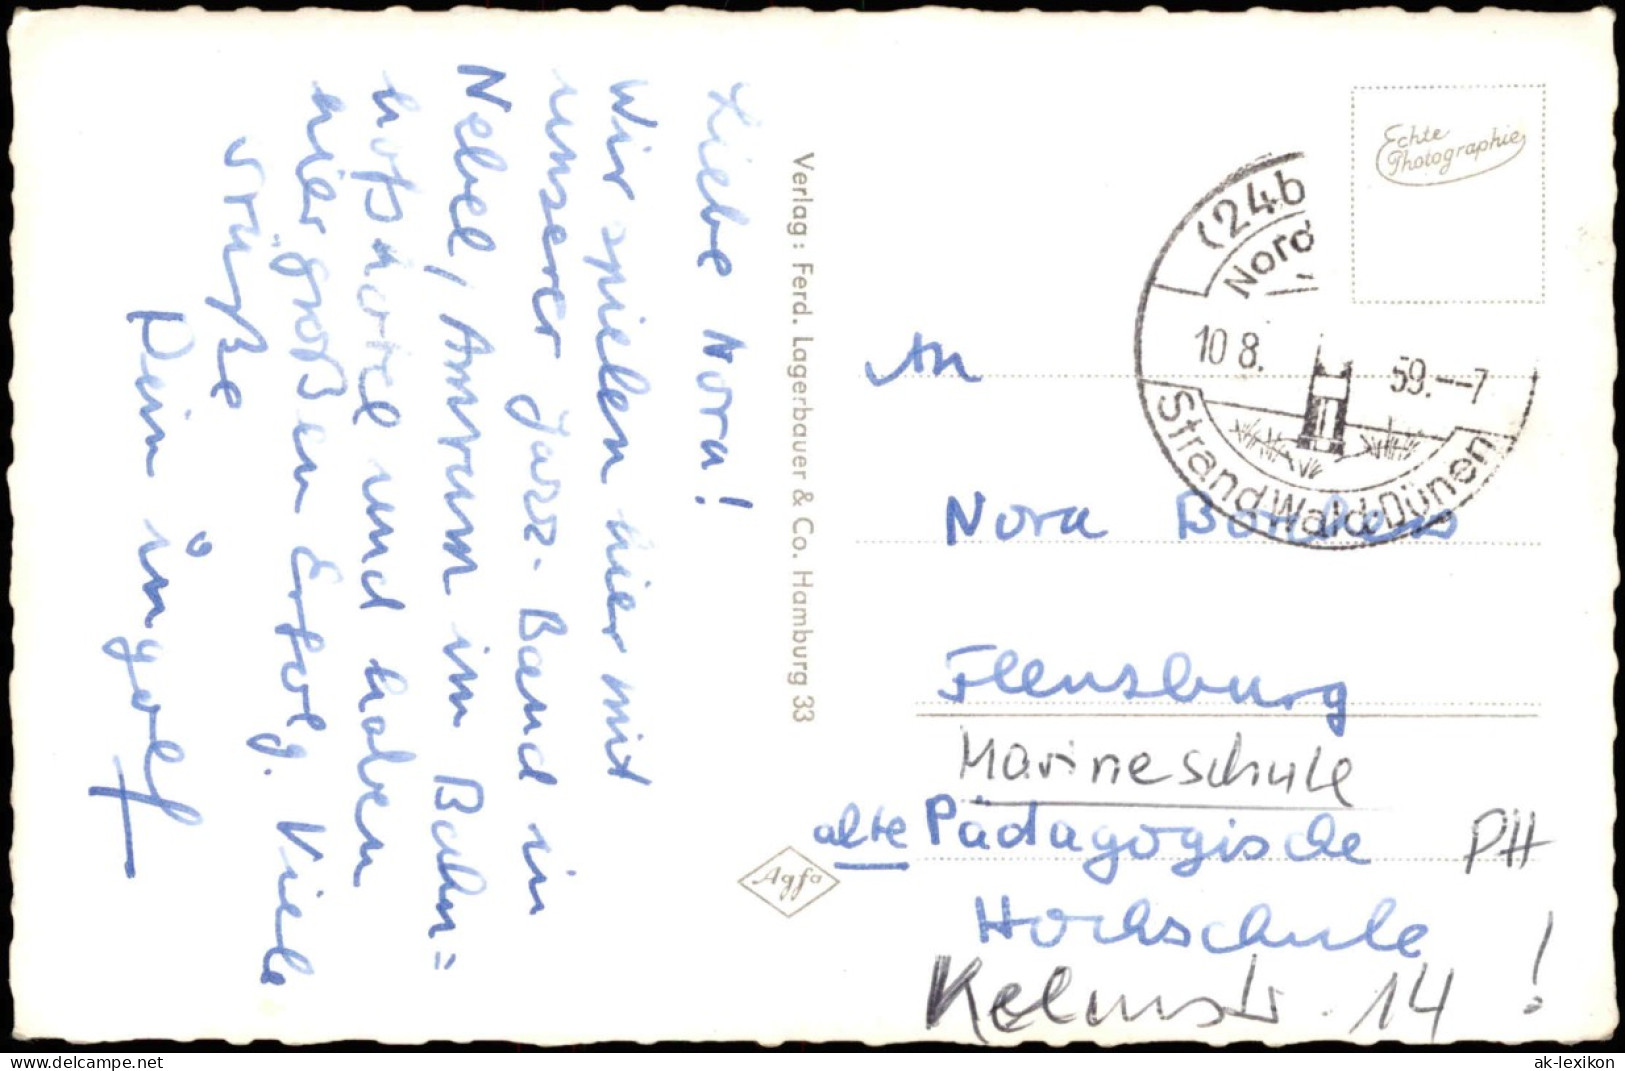 Liebe Nora!
Wir spielen hier mit
unserer Jazz-Band in
Nebel, Amrum im Bahn=
hofshotel und haben
hier großen Erfolg. Viele
Grüße
Dein Ingolf
Verlag: Ferd. Lagerbauer & Co. Hamburg 33
Agfa
Echte
Photographie
(24b
Nord
10 8. 59.--7
Strand·Wald·Dünen
An
Nora
Flensburg
Marineschule
alte Pädagogische PH
Hochschule !
Kelmstr. 14
© oldthing.de
ak-lexikon